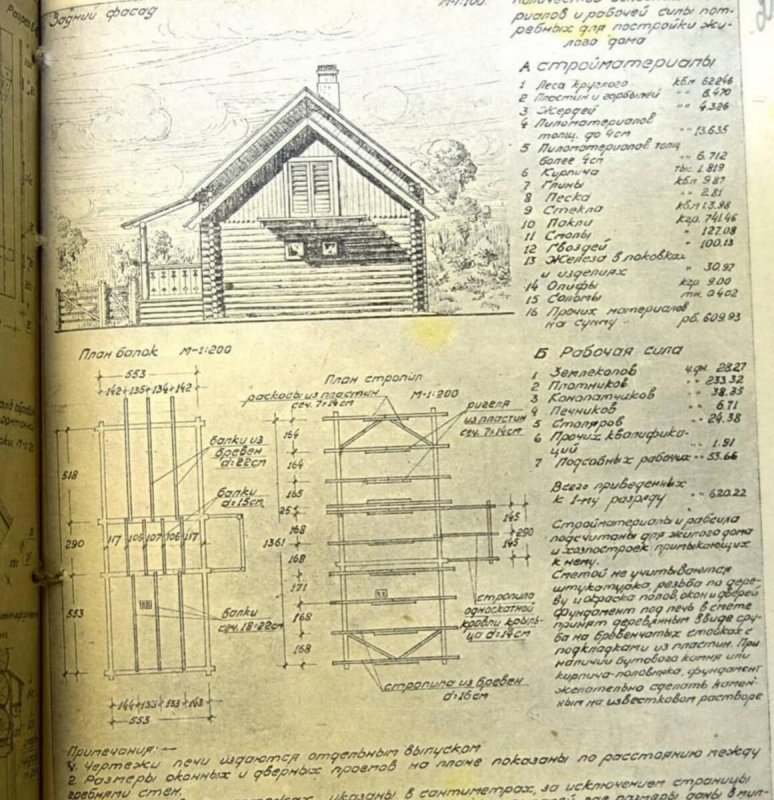 Задний фасад
М-1:100
риалов и рабочей силы пот-
ребных для постройки жи-
лого дома
А стройматериалы
1 Леса круглого кбм 62246
2 Пластин и горбылей " 6.470
3 Жердей " 4.326
4 Пиломатериалов
толщ. до 4см " 13.635
5 Пиломатериалов толщ
более 4см " 6.712
6 Кирпича тыс 1.819
7 Глины кбм 9.87
8 Песка " 2.81
9 Стекла кв.м 13.98
10 Пакли кгр. 741.46
11 Смолы " 127.08
12 Гвоздей " 100.13
13 Железа в поковках
и изделиях " 30.97
14 Олифы кгр 9.00
15 Соломы тн. 0.402
16 Прочих материалов
на сумму рб. 609.93
Б Рабочая сила
1 Землекопов ч.дн. 28.27
2 Плотников " 233.32
3 Конопатчиков " 38.35
4 Печников " 6.71
5 Столяров " 24.38
6 Прочих квалифика-
ций " 1.91
7 Подсобных рабочих " 53.66
Всего приведенных
к 1-му разряду " 620.22
Стройматериалы и рабсила
подсчитаны для жилого дома
и хозпостроек примыкающих
к нему.
Сметой не учитываются
штукатурка, резьба по дере-
ву и окраска полов, окон и дверей
Фундамент под печь в смете
принят деревянным в виде сру-
ба на бревенчатых стойках с
подкладками из пластин. При
наличии бутового камня или
кирпича-половняка, фундамент
желательно сделать камен-
ным на известковом растворе
План балок М-1:200
553
142+135+134+142
518
290
553
балки из
бревен
d=22см
балки
d=15см
117 106 107 106 117
балки
сеч. 18×22см
144+133+133+143
553
План стропил
М-1:200
раскосы из пластин
сеч. 7×14см
ригеля
из пластин
сеч. 7×14см
164
164
165
25.5
168
1361
168
171
168
168
145
290
145
стропила
односкатной
кровли крыль-
ца d=14см
стропила из бревен
d=16см
Примечания:—
1. Чертежи печи издаются отдельным выпуском
2. Размеры оконных и дверных проемов на плане показаны по расстоянию между
гребнями стен.
указаны в сантиметрах, за исключением страницы